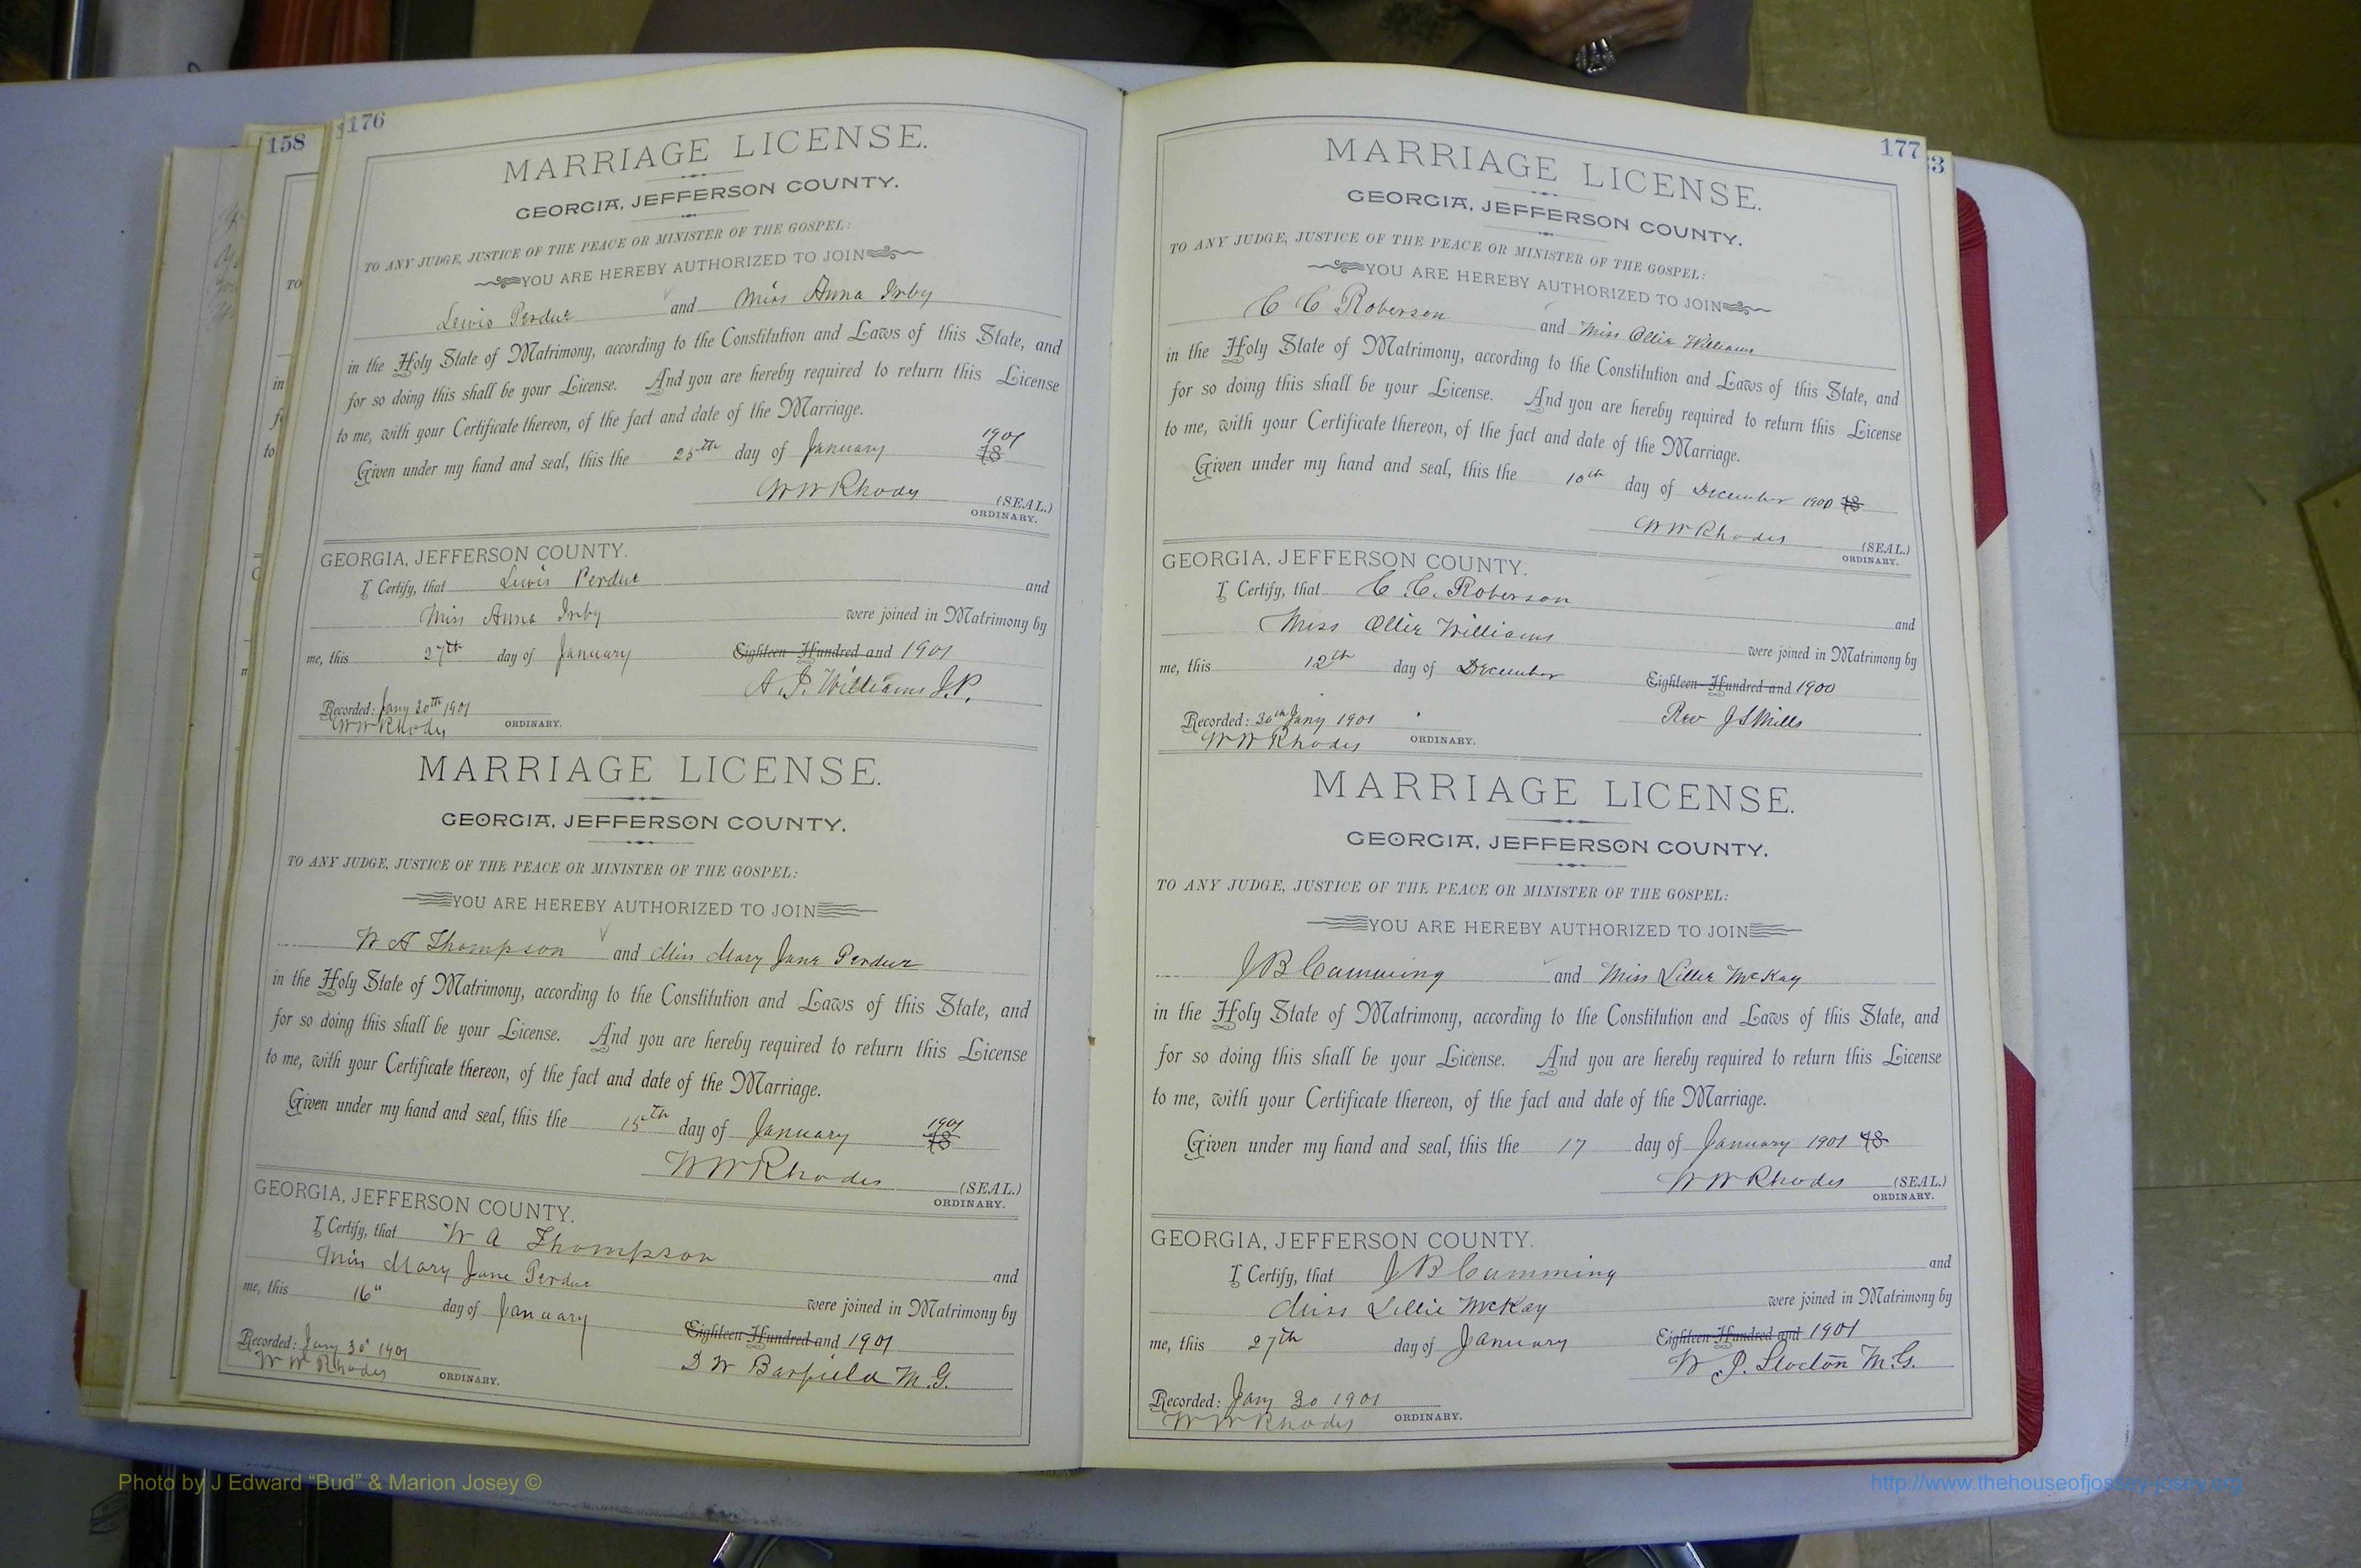 158
176
MARRIAGE LICENSE.
GEORGIA, JEFFERSON COUNTY.
TO ANY JUDGE, JUSTICE OF THE PEACE OR MINISTER OF THE GOSPEL:
YOU ARE HEREBY AUTHORIZED TO JOIN
Lewis Perdue and Miss Anna Irby
in the Holy State of Matrimony, according to the Constitution and Laws of this State, and
for so doing this shall be your License. And you are hereby required to return this License
to me, with your Certificate thereon, of the fact and date of the Marriage.
Given under my hand and seal, this the 25th day of January 1901 18
W W Rhodes (SEAL.)
ORDINARY.
GEORGIA, JEFFERSON COUNTY.
I Certify, that Lewis Perdue and
Miss Anna Irby were joined in Matrimony by
me, this 27th day of January Eighteen Hundred and 1901
A. P. Williams J.P.
Recorded: Jany 30th 1901
W W Rhodes ORDINARY.
MARRIAGE LICENSE.
GEORGIA, JEFFERSON COUNTY.
TO ANY JUDGE, JUSTICE OF THE PEACE OR MINISTER OF THE GOSPEL:
YOU ARE HEREBY AUTHORIZED TO JOIN
W A Thompson and Miss Mary Jane Perdue
in the Holy State of Matrimony, according to the Constitution and Laws of this State, and
for so doing this shall be your License. And you are hereby required to return this License
to me, with your Certificate thereon, of the fact and date of the Marriage.
Given under my hand and seal, this the 15th day of January 1901 18
W W Rhodes (SEAL.)
ORDINARY.
GEORGIA, JEFFERSON COUNTY.
I Certify, that W A Thompson and
Miss Mary Jane Perdue were joined in Matrimony by
me, this 16" day of January Eighteen Hundred and 1901
D W Barfield M.G.
Recorded: Jany 30" 1901
W W Rhodes ORDINARY.
177
33
MARRIAGE LICENSE.
GEORGIA, JEFFERSON COUNTY.
TO ANY JUDGE, JUSTICE OF THE PEACE OR MINISTER OF THE GOSPEL:
YOU ARE HEREBY AUTHORIZED TO JOIN
C C Roberson and Miss Ollie Williams
in the Holy State of Matrimony, according to the Constitution and Laws of this State, and
for so doing this shall be your License. And you are hereby required to return this License
to me, with your Certificate thereon, of the fact and date of the Marriage.
Given under my hand and seal, this the 10th day of December 1900 18
W W Rhodes (SEAL.)
ORDINARY.
GEORGIA, JEFFERSON COUNTY.
I Certify, that C. C. Roberson and
Miss Ollie Williams were joined in Matrimony by
me, this 12th day of December Eighteen Hundred and 1900
Rev J S Mills
Recorded: 30th Jany 1901
W W Rhodes ORDINARY.
MARRIAGE LICENSE.
GEORGIA, JEFFERSON COUNTY.
TO ANY JUDGE, JUSTICE OF THE PEACE OR MINISTER OF THE GOSPEL:
YOU ARE HEREBY AUTHORIZED TO JOIN
J B Cumming and Miss Lillie McKay
in the Holy State of Matrimony, according to the Constitution and Laws of this State, and
for so doing this shall be your License. And you are hereby required to return this License
to me, with your Certificate thereon, of the fact and date of the Marriage.
Given under my hand and seal, this the 17 day of January 1901 18
W W Rhodes (SEAL.)
ORDINARY.
GEORGIA, JEFFERSON COUNTY.
I Certify, that J B Cumming and
Miss Lillie McKay were joined in Matrimony by
me, this 27th day of January Eighteen Hundred and 1901
W P. Stocton M.G.
Recorded: Jany 30 1901
W W Rhodes ORDINARY.
Photo by J Edward “Bud” & Marion Josey ©
http://www.thehouseofjossey-josey.org